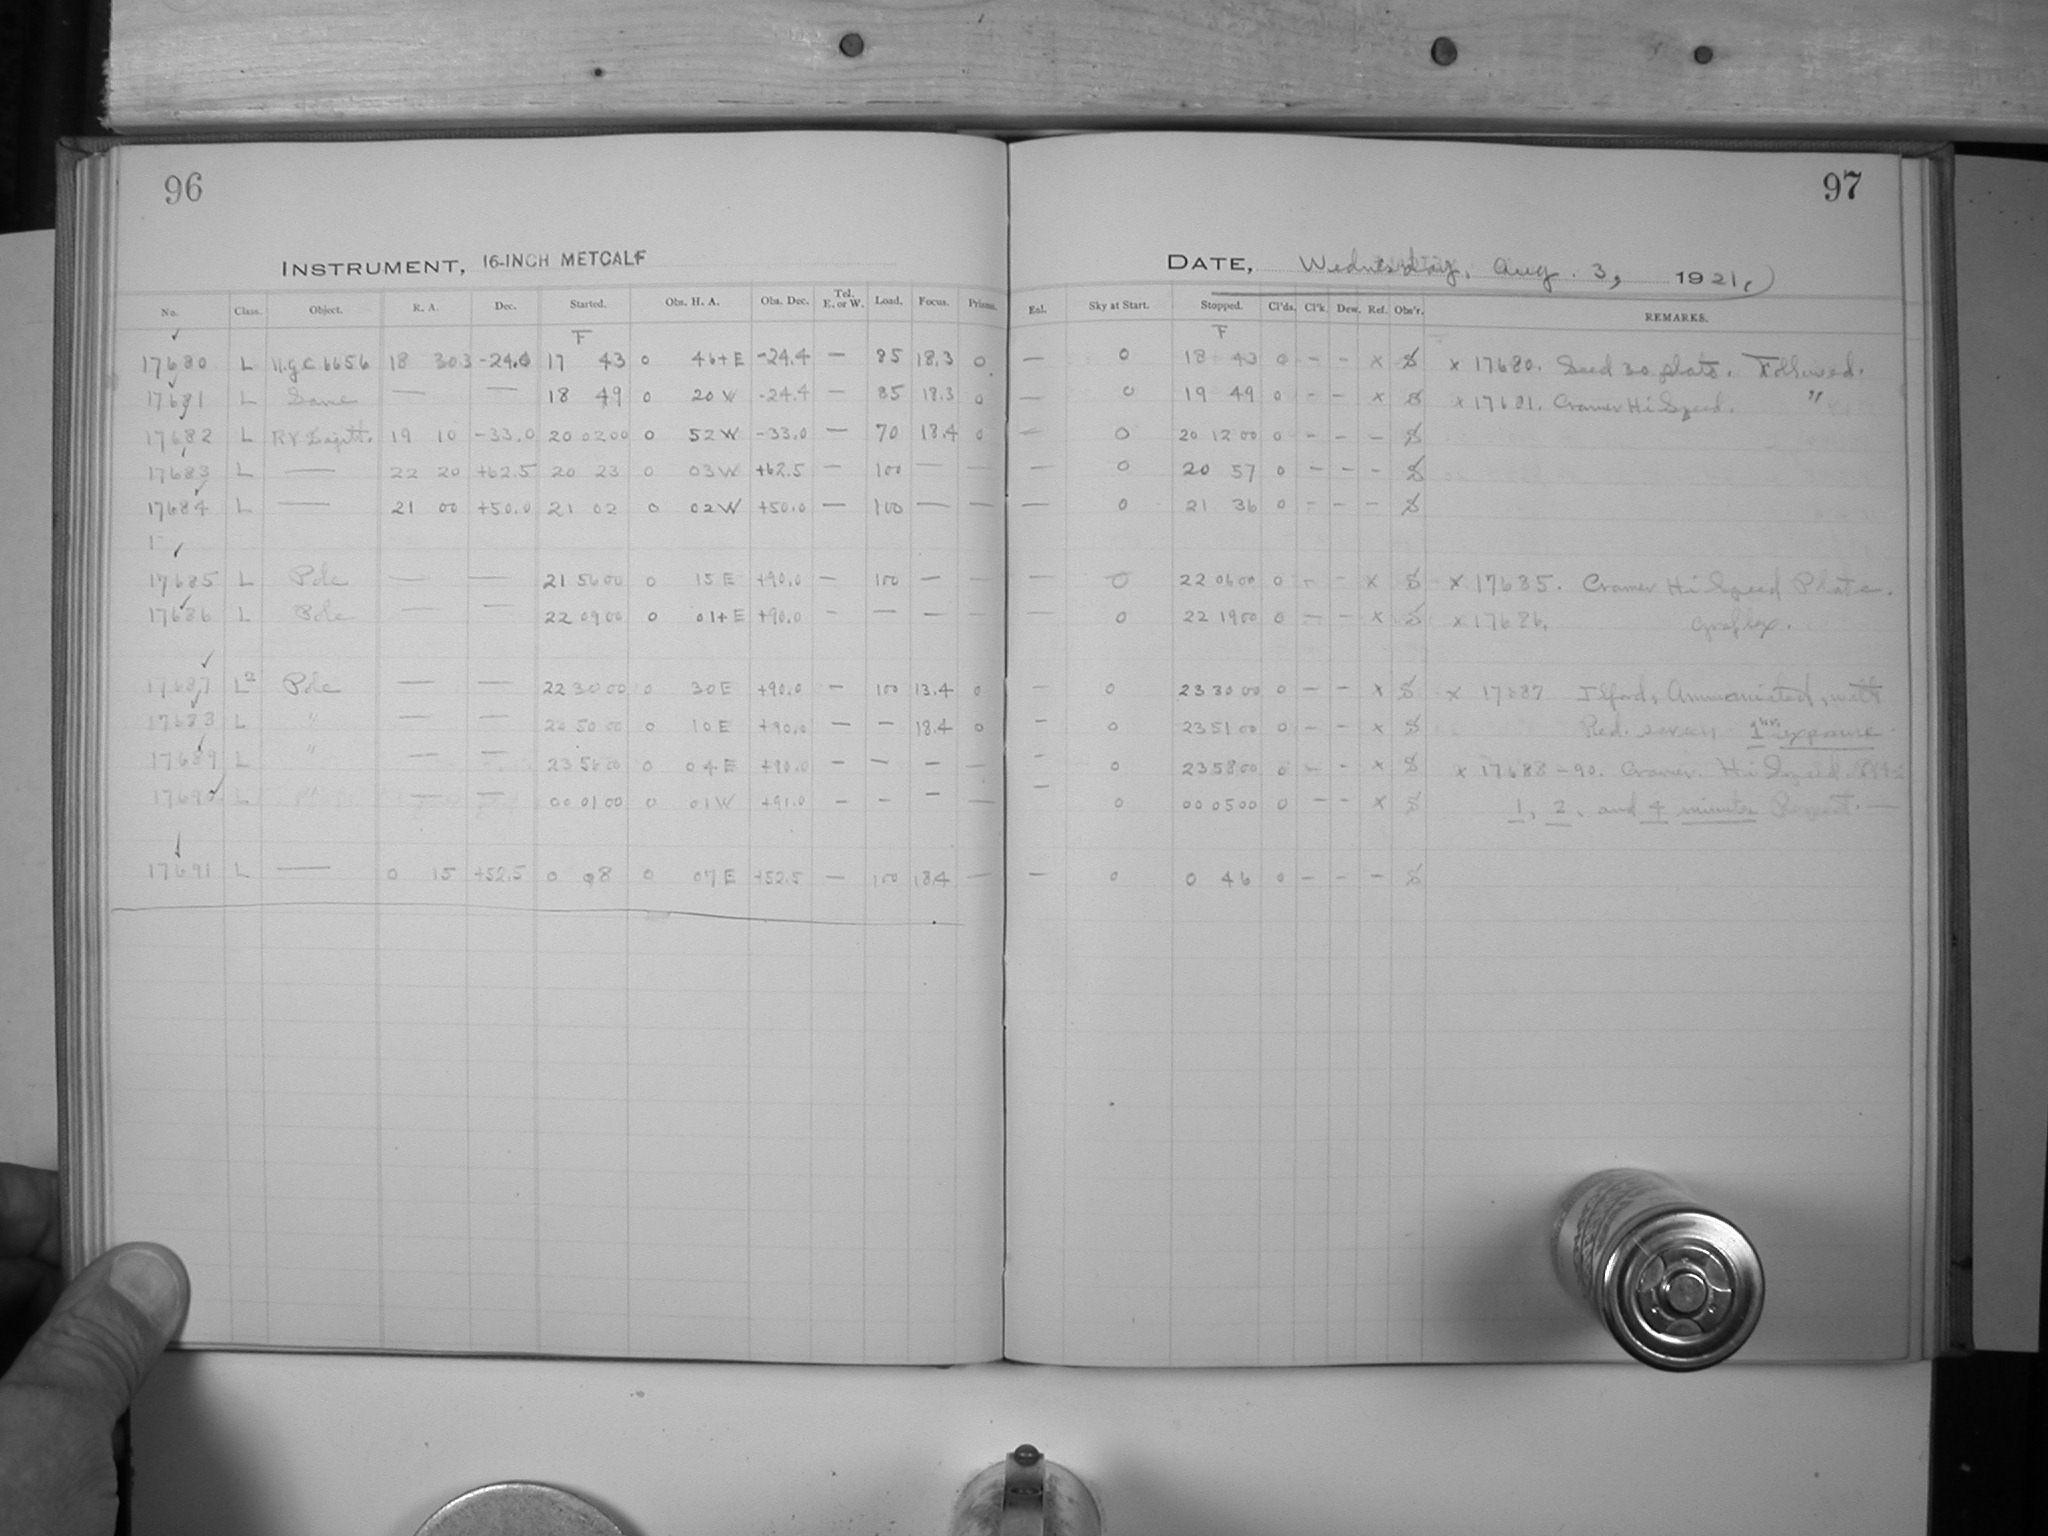 96
INSTRUMENT, 16-INCH METCALF
No. Class. Object. R. A. Dec. Started. Obs. H. A. Obs. Dec. Tel. E. or W. Load. Focus. Prisms.
F
17680 L N.G.C 6656 18 30.3 -24.0 17 43 0 46+E -24.4 — 85 18.3 0
17681 L Same — — 18 49 0 20 W -24.4 — 85 18.3 0
17682 L RY Sagitt. 19 10 -33.0 20 02 00 0 52 W -33.0 — 70 18.4 0
17683 L — 22 20 +62.5 20 23 0 03 W +62.5 — 100 — —
17684 L — 21 00 +50.0 21 02 0 02 W +50.0 — 100 — —
17685 L Pole — — 21 56 00 0 15 E +90.0 — 100 — —
17686 L Pole — — 22 09 00 0 01+E +90.0 - — — —
17687 L2 Pole — — 22 30 00 0 30 E +90.0 — 100 18.4 0
17688 L " — — 23 50 00 0 10 E +90.0 — — 18.4 0
17689 L " — — 23 56 00 0 04 E +90.0 — — — —
17690 L — — 00 01 00 0 01 W +91.0 — — — —
17691 L — 0 15 +52.5 0 08 0 07 E +52.5 — 100 18.4 —
97
DATE, Wednesday, Aug. 3, 1921,
Enl. Sky at Start. Stopped. Cl'ds. Cl'k. Dew. Ref. Obs'r. REMARKS.
F
— 0 18 43 0 - - x S x 17680. Seed 30 plate. Followed.
— 0 19 49 0 - - x S x 17681. Cramer Hi Speed. "
— 0 20 12 00 0 - - - S
— 0 20 57 0 - - - S
— 0 21 36 0 - - - S
— 0 22 06 00 0 - - x S x 17685. Cramer Hi Speed Plate.
— 0 22 19 00 0 — - x S x 17686. Graflex.
— 0 23 30 00 0 - - x S x 17687 Ilford, Ammoniated, with
— 0 23 51 00 0 - - x S Red screen 1 hr. exposure.
0 23 58 00 0 - - x S x 17688-90. Cramer Hi Speed
— 0 00 05 00 0 - - x S 1, 2, and 4 minutes —
— 0 0 46 0 - - - S